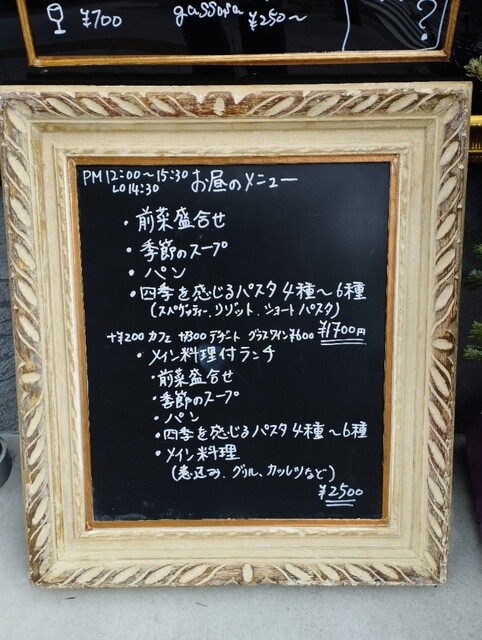 ¥700 gassosa ¥250～
?
PM 12:00～15:30 お昼のメニュー
LO 14:30
・前菜盛合せ
・季節のスープ
・パン
・四季を感じるパスタ 4種～6種
(スパゲッティー、リゾット、ショートパスタ)
+¥200 カフェ +¥300 デザート グラスワイン¥600 ¥1700円
・メイン料理付ランチ
・前菜盛合せ
・季節のスープ
・パン
・四季を感じるパスタ 4種～6種
・メイン料理
(煮込み、グリル、カツレツなど)
¥2500